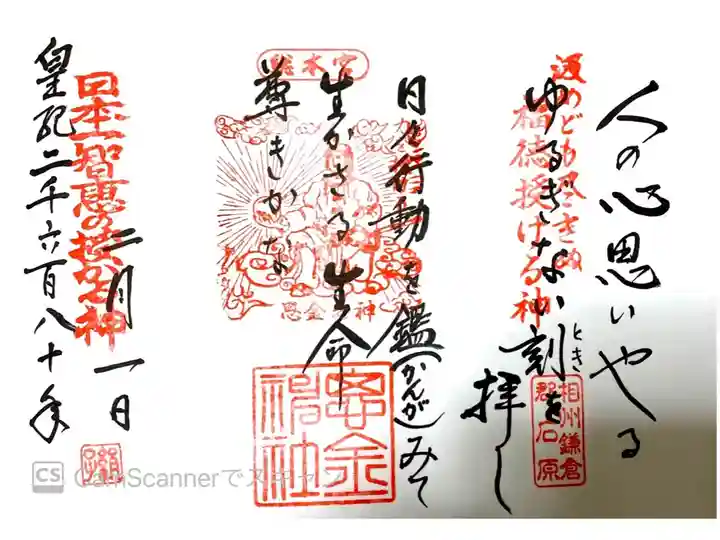 人の心思いやる
汲めども尽きぬ
福徳授ける神
ゆるぎない刻を
とき
拝し
相州鎌倉
郡石原
日々行動を鑑(かんが)みて
生かさる生命
尊きかな
熊本宮
思金神
思金神社
日本一智恵の授かる神
二月一日
皇紀二千六百八十年
CS CamScannerでスキャン